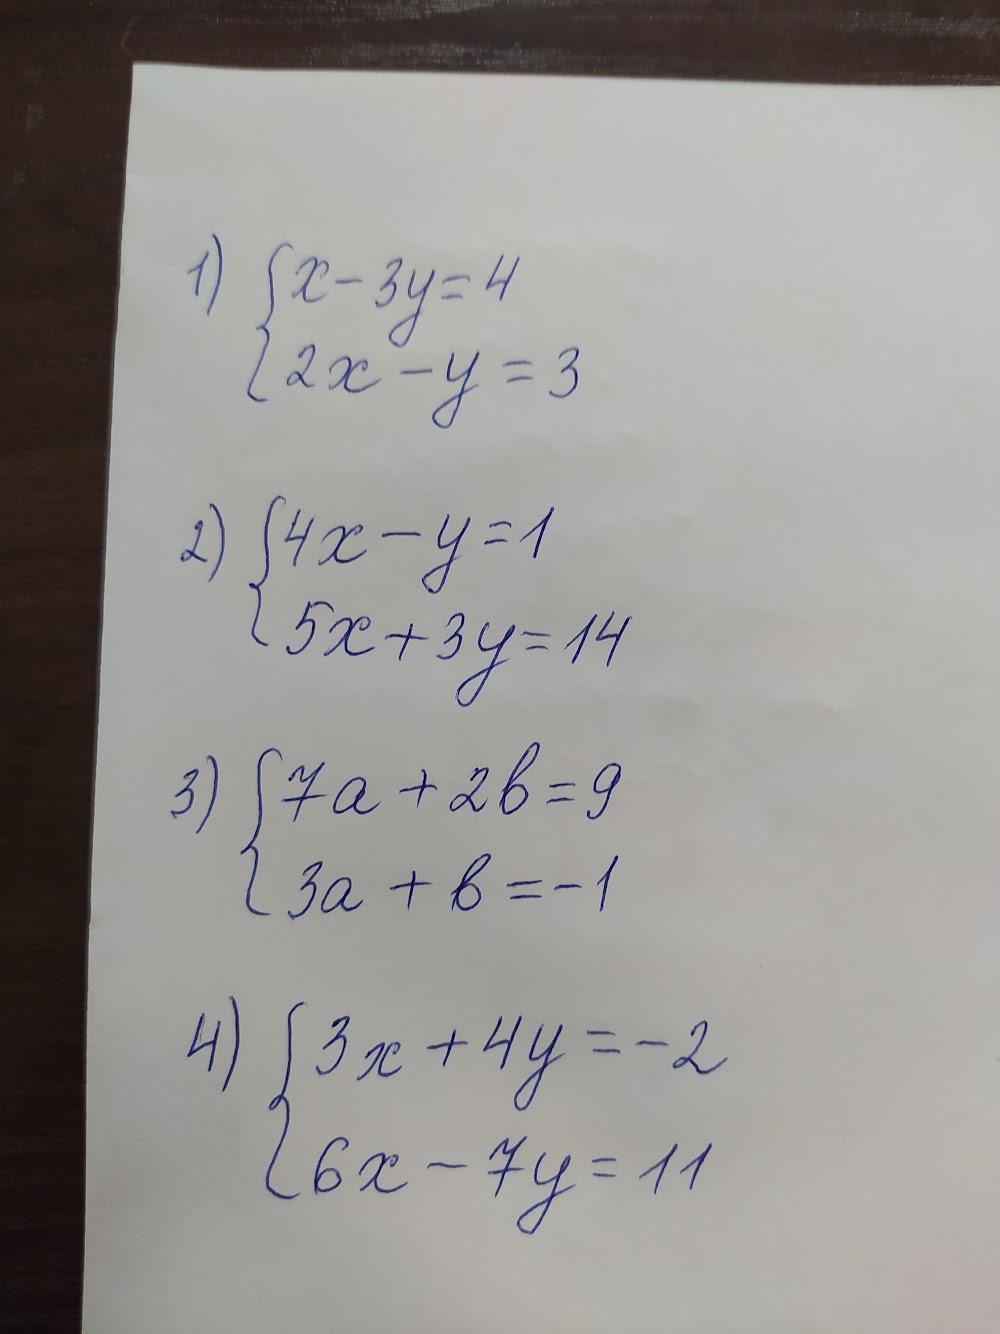 1) { x - 3y = 4
2x - y = 3
2) { 4x - y = 1
5x + 3y = 14
3) { 7a + 2b = 9
3a + b = -1
4) { 3x + 4y = -2
6x - 7y = 11